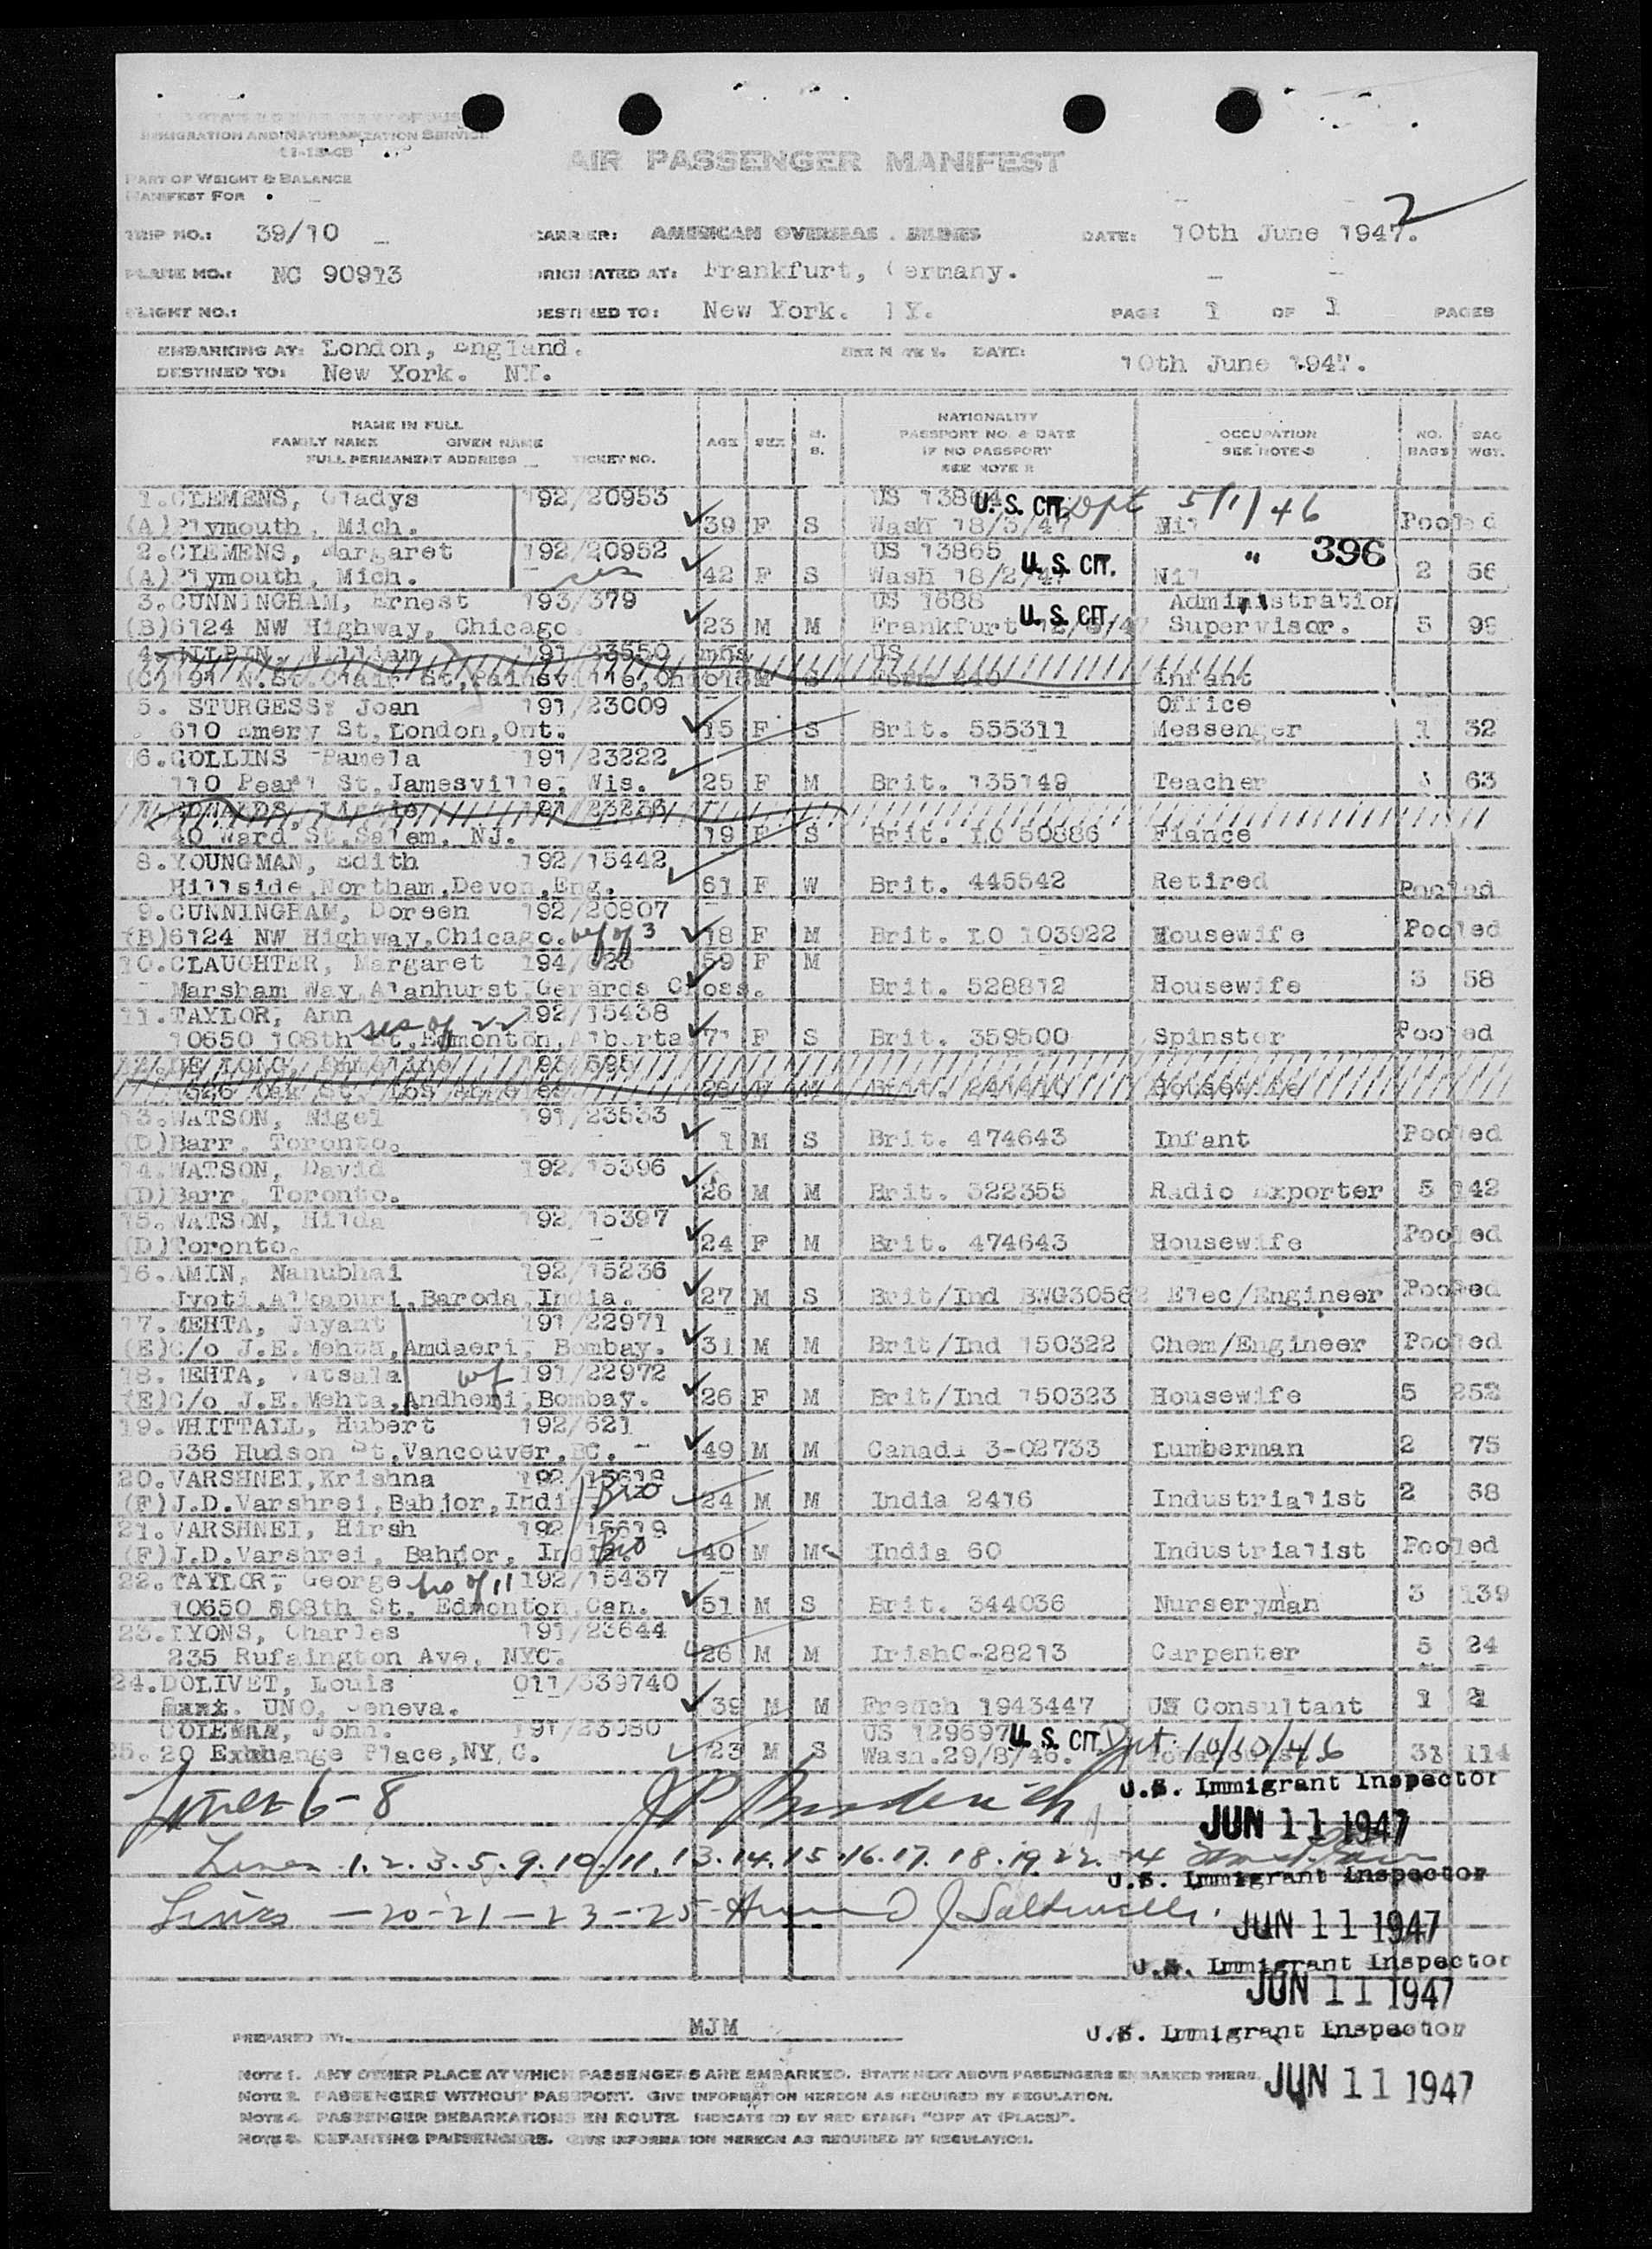 IMMIGRATION AND NATURALIZATION SERVICE
PART OF WEIGHT & BALANCE
MANIFEST FOR
AIR PASSENGER MANIFEST
2
TRIP NO.: 39/10 CARRIER: AMERICAN OVERSEAS DATE: 10th June 1947.
PLANE NO.: NC 90913 ORIGINATED AT: Frankfurt, Germany.
FLIGHT NO.: DESTINED TO: New York. NY. PAGE 1 OF 1 PAGES
EMBARKING AT: London, England. DATE: 10th June 1947.
DESTINED TO: New York. NY.
NAME IN FULL
FAMILY NAME GIVEN NAME
FULL PERMANENT ADDRESS TICKET NO.
AGE SEX M. S.
NATIONALITY
PASSPORT NO. & DATE
IF NO PASSPORT
SEE NOTE
OCCUPATION
SEE NOTE
NO. BAGS BAG WGT.
1. CLEMENS, Gladys 192/20953 US U.S. CIT. Dpt 5/1/46
(A) Plymouth, Mich. 39 F S Wash 18/3/47 Nil Pooled
2. CLEMENS, Margaret 192/20952 US 13865 U.S. CIT. " 396
(A) Plymouth, Mich. 42 F S Nil 2 56
3. CUNNINGHAM, Ernest 193/379 US 1688 U.S. CIT. Administration
(B) 6124 NW Highway, Chicago. 23 M M Frankfurt Supervisor. 5
4. William 191/23550 mths US
(C) 191 N.St.Clair St, Painsville, Ohio M S Form 240 Infant
5. STURGESS: Joan 191/23009 Office
610 Emery St, London, Ont. 15 F S Brit. 555311 Messenger 1 32
6. COLLINS Pamela 191/23222
110 Pearl St, Jamesville, Wis. 25 F M Brit. 135149 Teacher 63
7. 191/23236
40 Ward St, Salem, NJ. 19 F S Brit. LO 50886 Fiance
8. YOUNGMAN, Edith 192/15442
Hillside, Northam, Devon, Eng. 61 F W Brit. 445542 Retired Pooled
9. CUNNINGHAM, Doreen 192/20807
(B) 6124 NW Highway, Chicago. wf of 3 18 F M Brit. LO 103922 Housewife Pooled
10. CLAUGHTER, Margaret 59 F M
Marsham Way, Alanhurst, Gerards Cross. Brit. 528812 Housewife 3 58
11. TAYLOR, Ann sis of 22 192/15438
10650 108th St, Edmonton, Alberta 71 F S Brit. 359500 Spinster Pooled
12. DE LONG, 193/695
Oak St. Los Angeles M Brit. Housewife
13. WATSON, Nigel 191/23533
(D) Barr, Toronto. 1 M S Brit. 474643 Infant Pooled
14. WATSON, David 192/15396
(D) Barr, Toronto. 26 M M Brit. 322355 Radio Exporter 5 142
15. WATSON, Hilda 192/15397
(D) Toronto. 24 F M Brit. 474643 Housewife Pooled
16. AMIN, Nanubhai 192/15236
Jyoti, Alkapuri, Baroda, India. 27 M S Brit/Ind Elec/Engineer Pooled
17. MEHTA, Jayant 191/22971
(E) C/o J.E. Mehta, Amdaeri, Bombay. 31 M M Brit/Ind 150322 Chem/Engineer Pooled
18. MEHTA, Vatsala wf 191/22972
(E) C/o J.E. Mehta, Andheri, Bombay. 26 F M Brit/Ind 150323 Housewife 5 252
19. WHITTALL, Hubert 192/621
636 Hudson St, Vancouver, BC. 49 M M Canada 3-02733 Lumberman 2 75
20. VARSHNEI, Krishna 192/15618
(F) J.D. Varshrei, Bahjor, India Bro 24 M M India 2416 Industrialist 2 68
21. VARSHNEI, Hirsh 192/15619
(F) J.D. Varshrei, Bahjor, India. Bro 40 M M India 60 Industrialist Pooled
22. TAYLOR, George bro of 11 192/15437
10650 108th St. Edmonton, Can. 51 M S Brit. 344036 Nurseryman 3 139
23. LYONS, Charles 191/23644
235 Rufaington Ave, NYC. 26 M M Irish C-28213 Carpenter 5 24
24. DOLIVET, Louis 011/339740
UNO, Geneva. 39 M M French 1943447 UN Consultant 1
COLEMAN, John. US 129697 U.S. CIT. Dpt 10/10/46
25. 20 Exchange Place, NY.C. 23 M S Wash. 29/8/46. 114
Lines 6-8 U.S. Immigrant Inspector
JUN 11 1947
Lines 1.2.3.5.9.10.11.13.14.15.16.17.18.19.22.24
U.S. Immigrant Inspector
Lines -20-21-23-25
JUN 11 1947
U.S. Immigrant Inspector
JUN 11 1947
PREPARED BY: MJM
U.S. Immigrant Inspector
NOTE 1. ANY OTHER PLACE AT WHICH PASSENGERS ARE EMBARKED. STATE NEXT ABOVE PASSENGERS EMBARKED THERE.
JUN 11 1947
NOTE 2. PASSENGERS WITHOUT PASSPORT. GIVE INFORMATION HEREON AS REQUIRED BY REGULATION.
NOTE 4. PASSENGER DEBARKATIONS EN ROUTE. INDICATE BY RED STAMP: "OFF AT (PLACE)".
NOTE DEPARTING PASSENGERS. GIVE INFORMATION HEREON AS REQUIRED BY REGULATION.